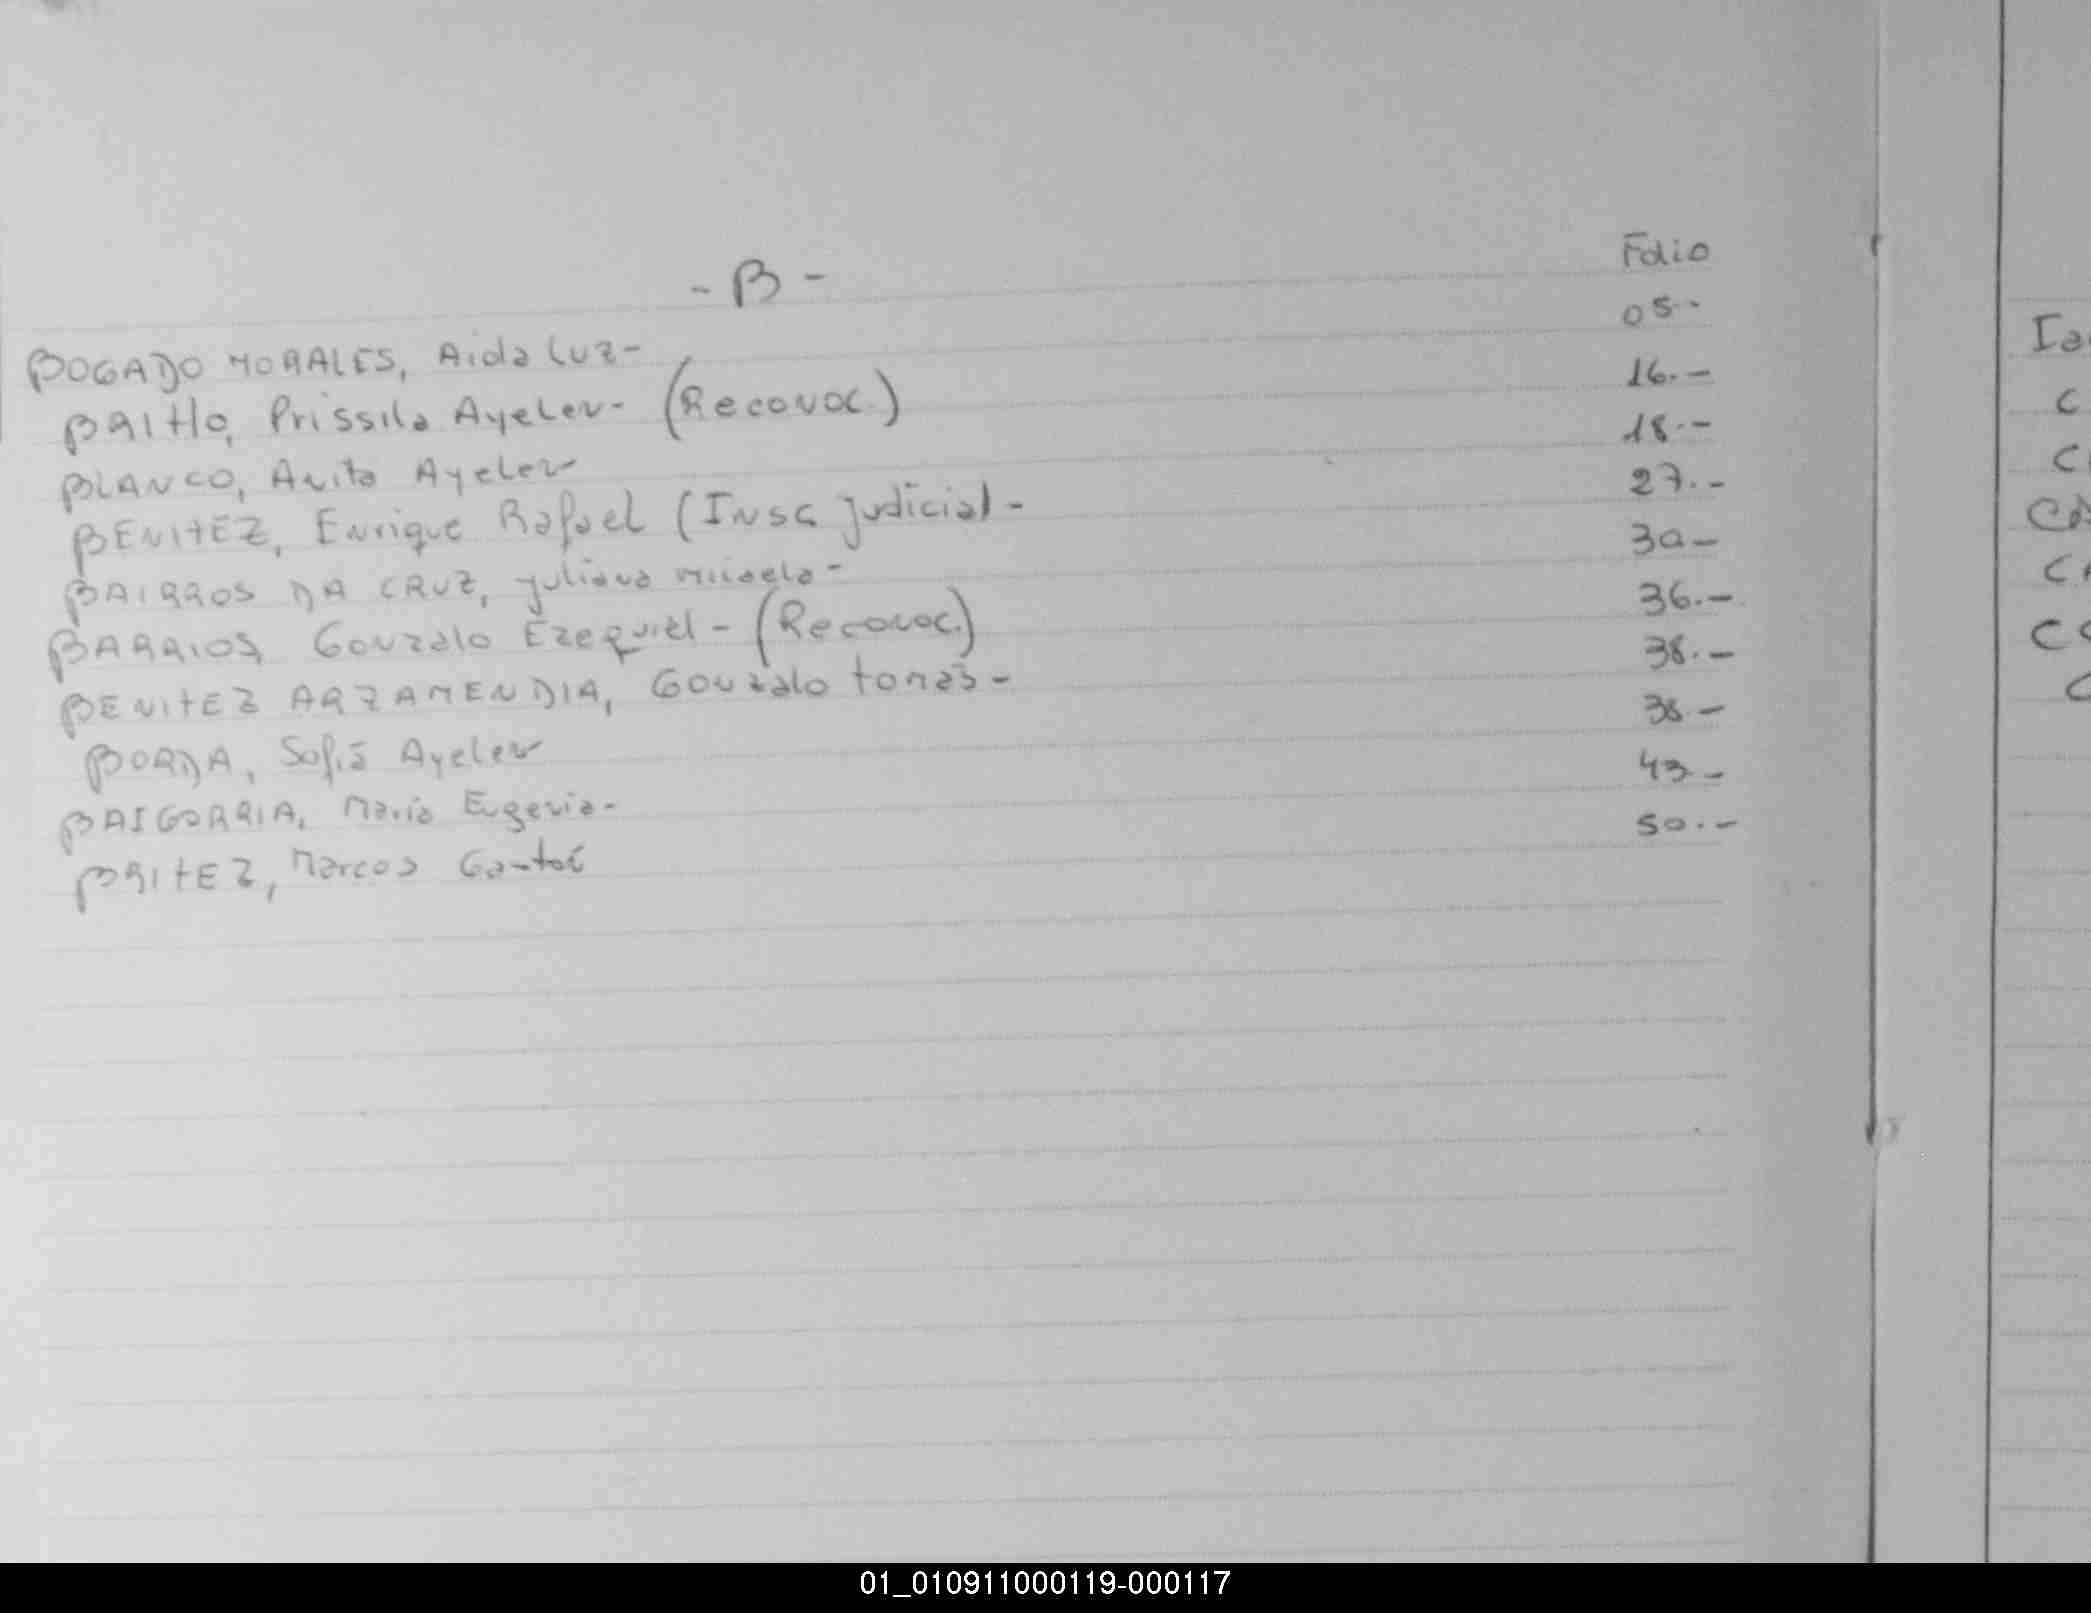 - B -
Folio
BOGADO MORALES, Aida Luz- 05.-
BRITTO, Prissila Ayelen- (Reconoc.) 16.-
BLANCO, Anita Ayelen 18.-
BENITEZ, Enrique Rafael (Insc Judicial- 27.-
BAIRROS DA CRUZ, Juliana Micaela- 30-
BARRIOS, Gonzalo Ezequiel- (Reconoc.) 36.-
BENITEZ ARZAMENDIA, Gonzalo Tomás- 38.-
BORDA, Sofía Ayelen 38.-
BAIGORRIA, María Eugenia- 43-
BRITEZ, Marcos 50.-
01_010911000119-000117